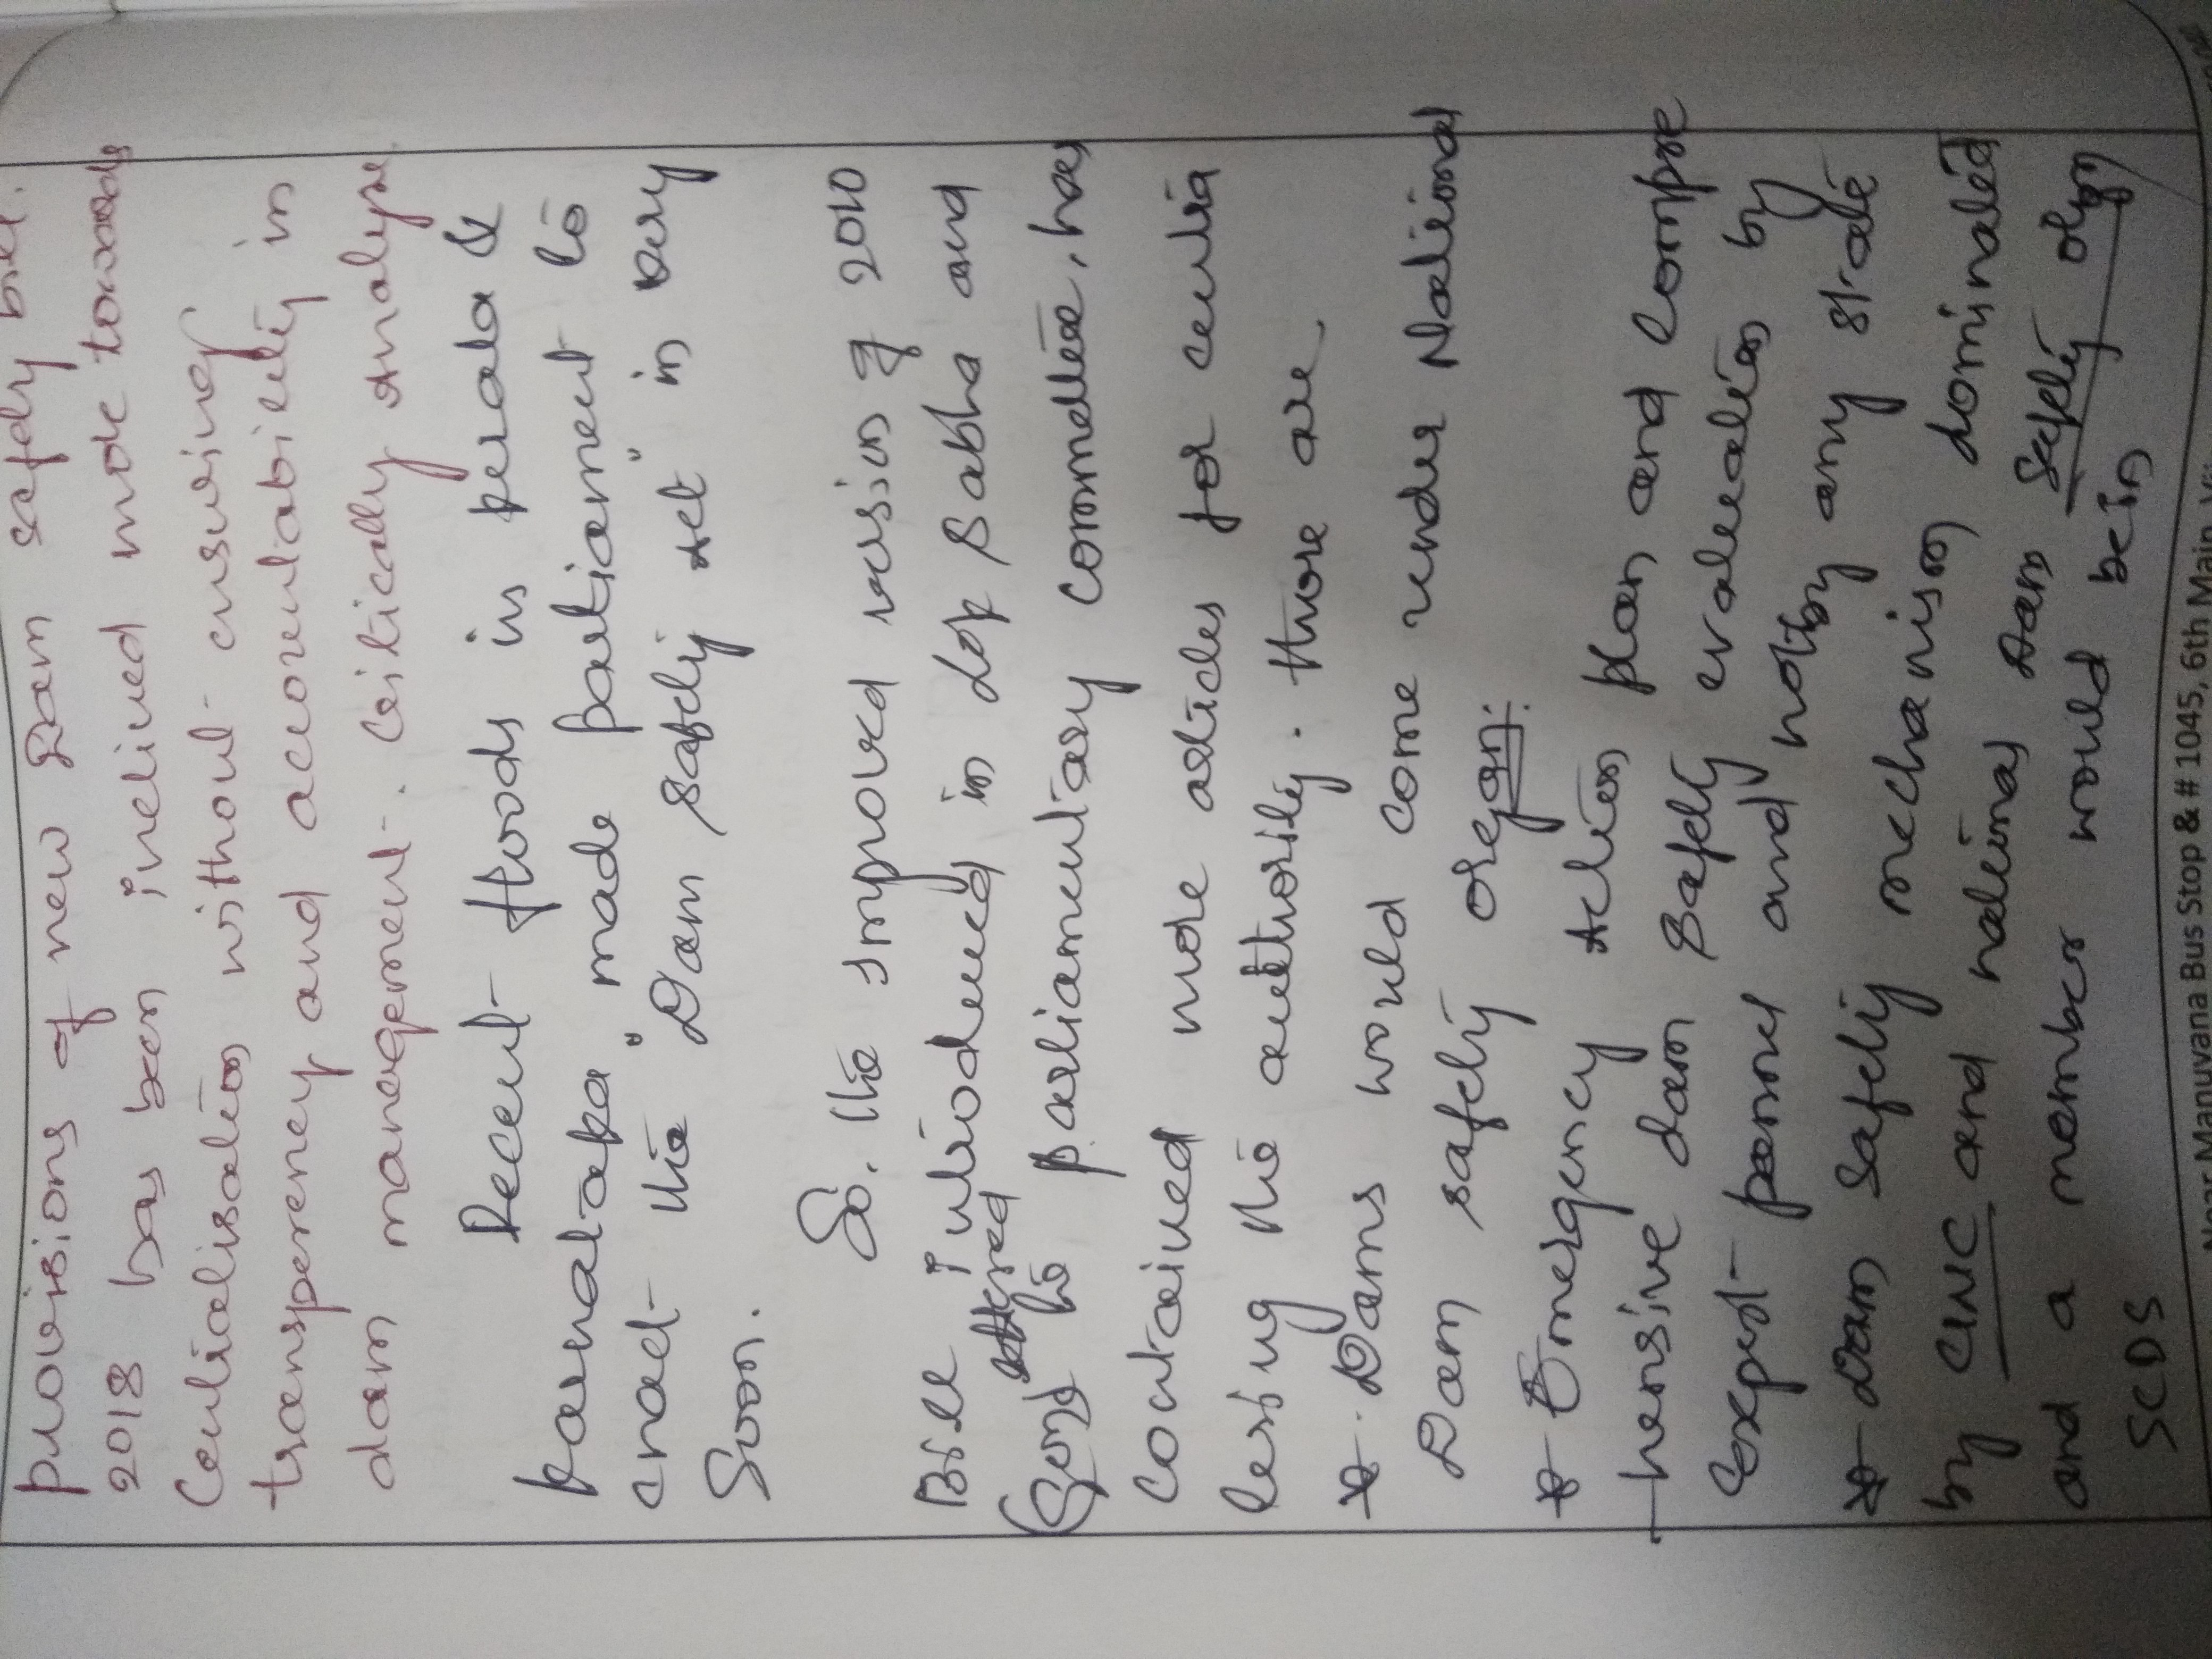 provisions of new Dam safety bill.
2018 has been inclined more towards
Centralisation without ensuring
transperency and accountability in
dam management. Critically Analyse.
Recent floods in kerala &
karnataka made parliament to
enact the "Dam Safety Act" in very
Soon.
So, the improved version of 2010
Bill introduced in Lok Sabha and
Send to parliamentary committee, has
contained more articles for centra
lising the authority. those are,
* Dams would come under National
Dam safety organ.
* Emergency Action plan and Compre
hensive dam Safety evaluation by
Expert pannel and not by any state
* Dam Safety mechanism dominated
by CWC and national Dam Safety orgn
and a member would be in
SCDS
Near Manuvana Bus Stop & # 1045, 6th Main